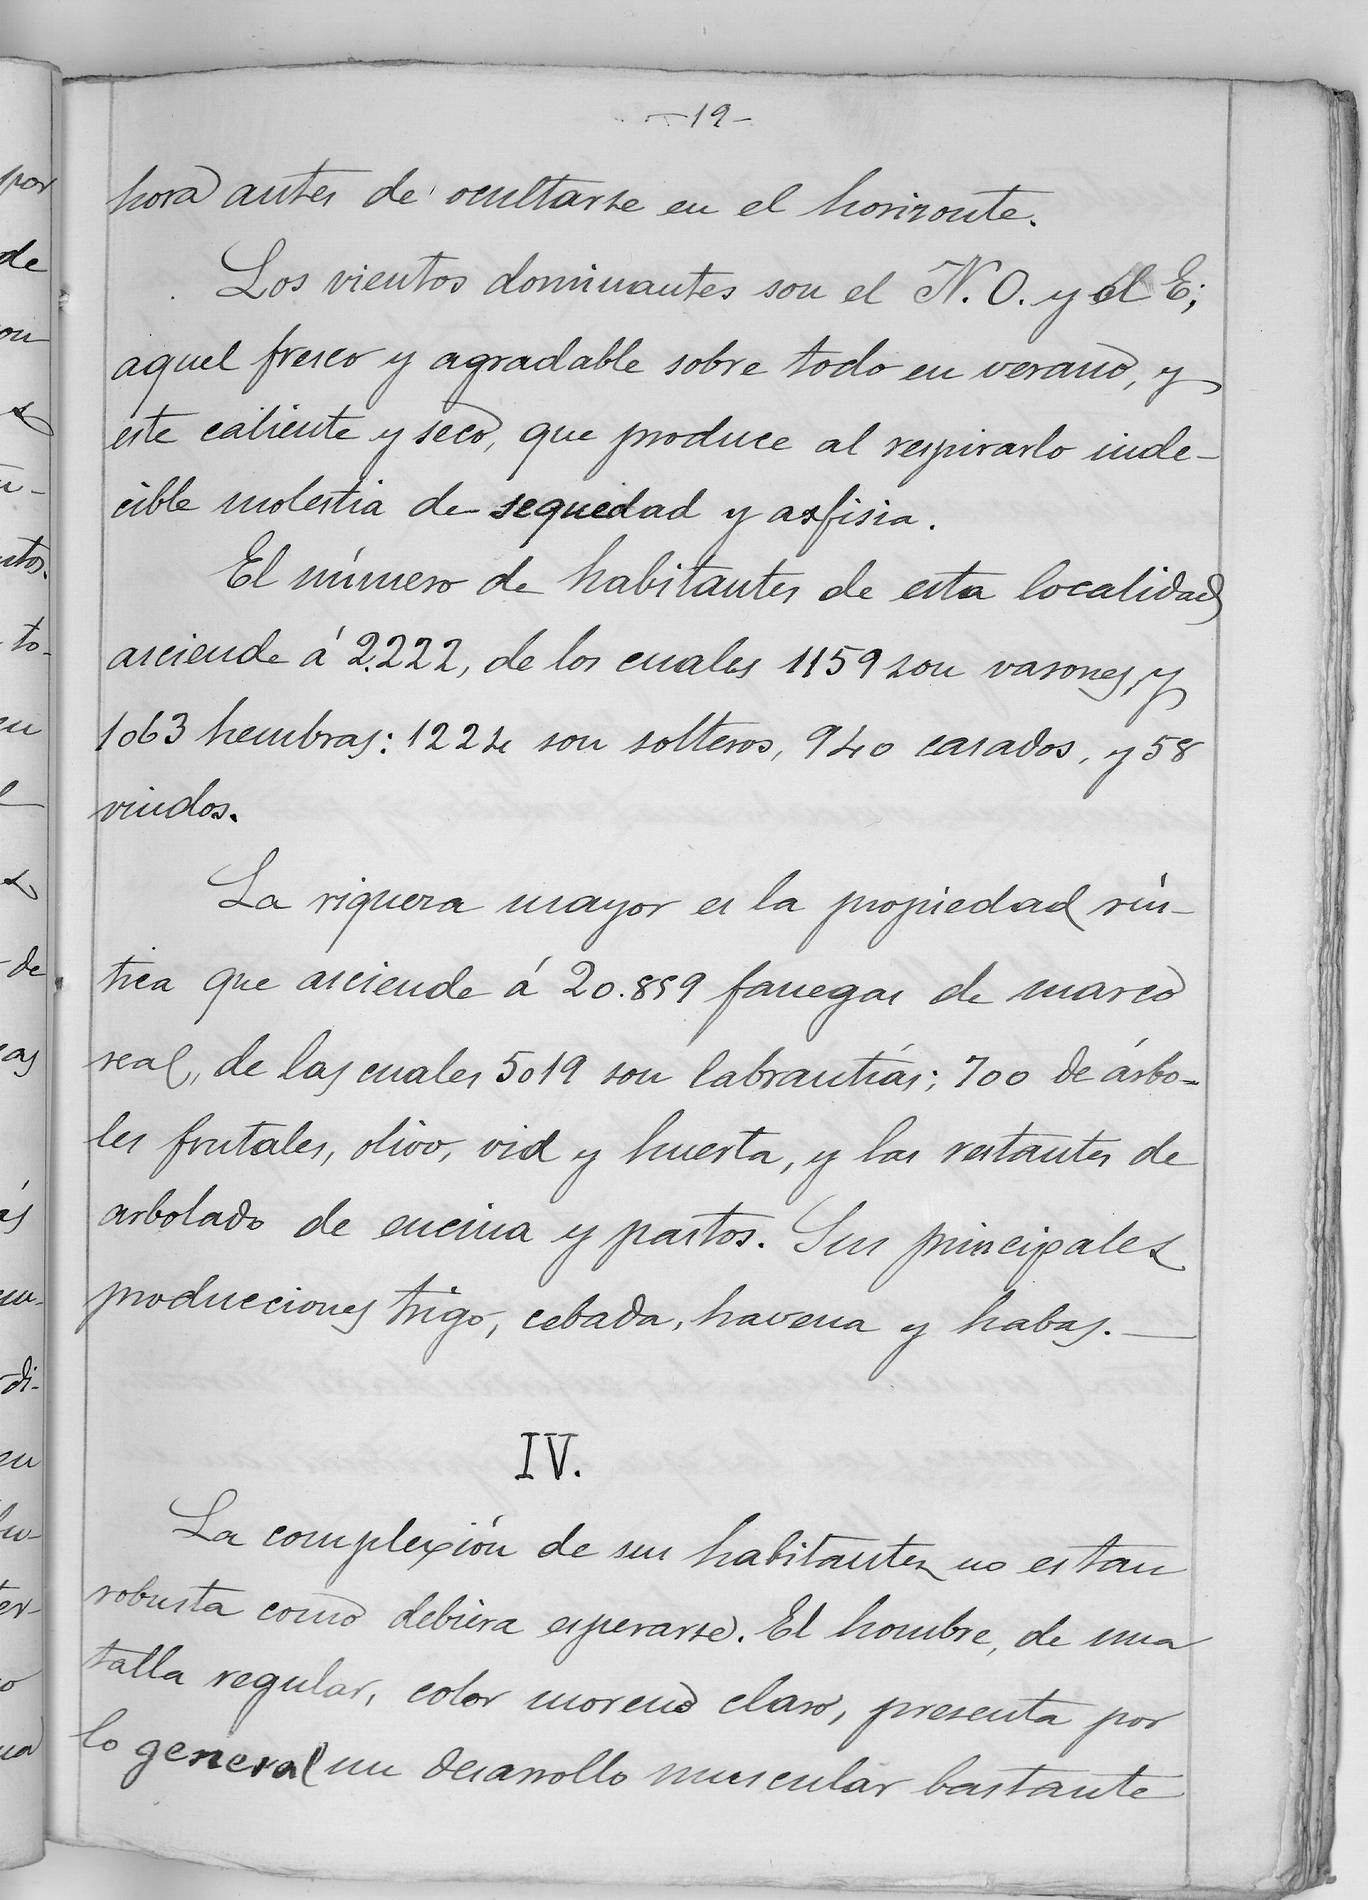 -19-
hora antes de ocultarse en el horizonte.
Los vientos dominantes son el N.O. y el E;
aquel fresco y agradable sobre todo en verano, y
este caliente y seco, que produce al respirarlo inde-
cible molestia de sequedad y asfisia.
El número de habitantes de esta localidad
asciende á 2.222, de los cuales 1159 son varones, y
1063 hembras: 1224 son solteros, 940 casados, y 58
viudos.
La riqueza mayor es la propiedad rús-
tica que asciende á 20.859 fanegas de marco
real, de las cuales 5019 son labrantías; 700 de árbo-
les frutales, olivo, vid y huerta, y las restantes de
arbolado de encina y pastos. Sus principales
producciones trigo, cebada, havena y habas.—
IV.
La complexión de sus habitantes no es tan
robusta como debiera esperarse. El hombre, de una
talla regular, color moreno claro, presenta por
lo general un desarrollo muscular bastante
por
de
on
ntos.
to-
en
de
di-
en
ter-